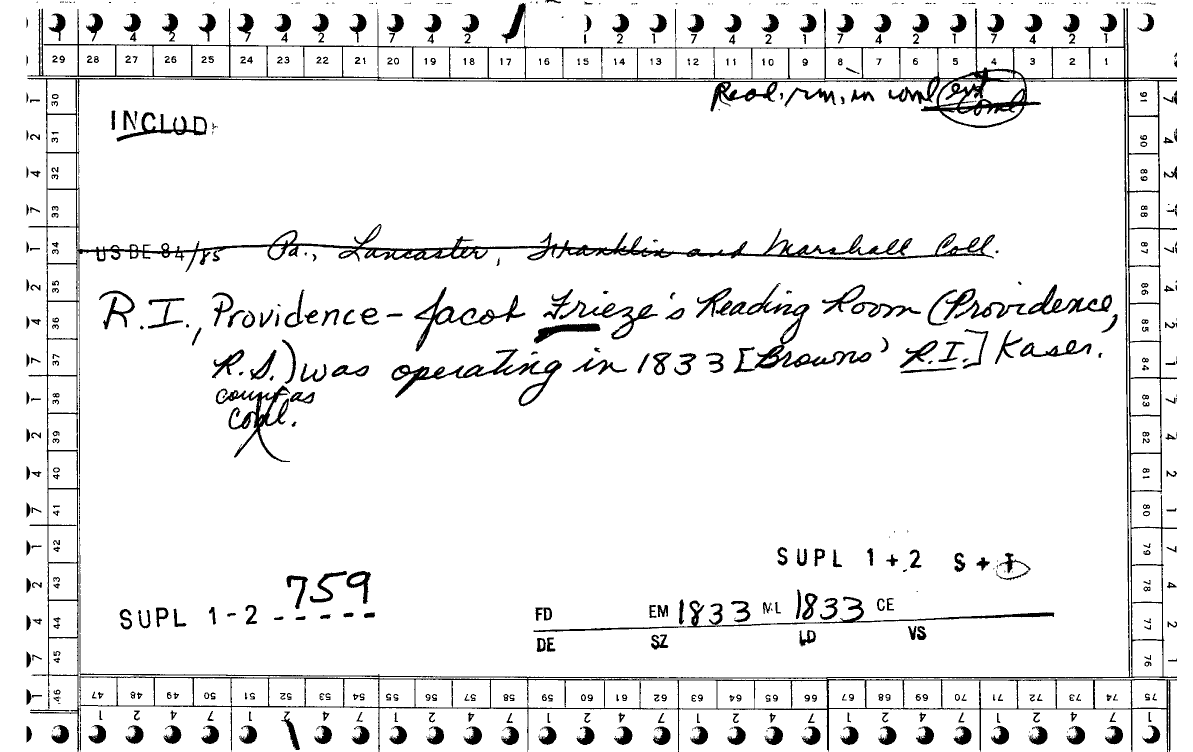 1 7 4 2 1 7 4 2 1 7 4 2 1 1 2 1 7 4 2 1 7 4 2 1 7 4 2 1
29 28 27 26 25 24 23 22 21 20 19 18 17 16 15 14 13 12 11 10 9 8 7 6 5 4 3 2 1
Read. rm. in coml ext
coml
INCLUD
US DE 84/85 Pa., Lancaster, Franklin and Marshall Coll.
R.I., Providence - Jacob Frieze's Reading Room (Providence,
R.I.) was operating in 1833 [Browns' R.I.] Kaser.
count as
coml.
SUPL 1+2 S+I
759
SUPL 1-2 - - - - -
FD EM 1833 ML 1833 CE
DE SZ LD VS
30 31 32 33 34 35 36 37 38 39 40 41 42 43 44 45 46
91 90 89 88 87 86 85 84 83 82 81 80 79 78 77 76 75
47 48 49 50 51 52 53 54 55 56 57 58 59 60 61 62 63 64 65 66 67 68 69 70 71 72 73 74 75
1 2 4 7 1 2 4 7 1 2 4 7 1 2 4 7 1 2 4 7 1 2 4 7 1 2 4 7 1